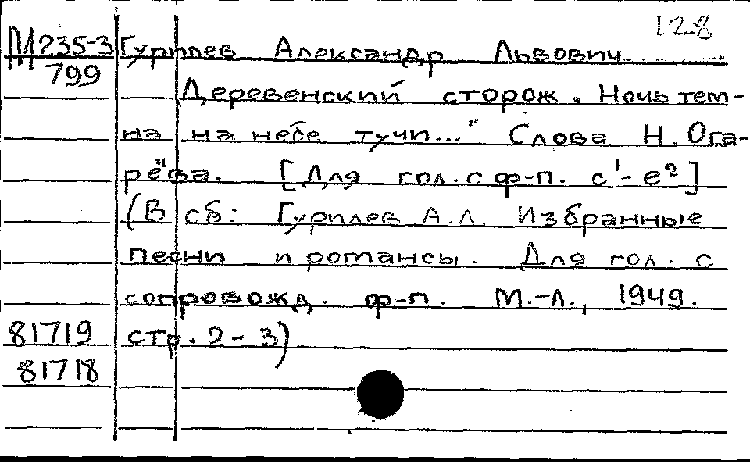 128
М235-3 Гурилев Александр Львович
799
Деревенский сторож. Ночь тем-
на на небе тучи..." Слова Н. Ога-
рёва. [Для гол. с ф-п. c¹- e²]
(В сб: Гурилев А.Л. Избранные
песни и романсы. Для гол. с
сопровожд. ф-п. М.-Л., 1949.
81719 стр. 2-3)
81718